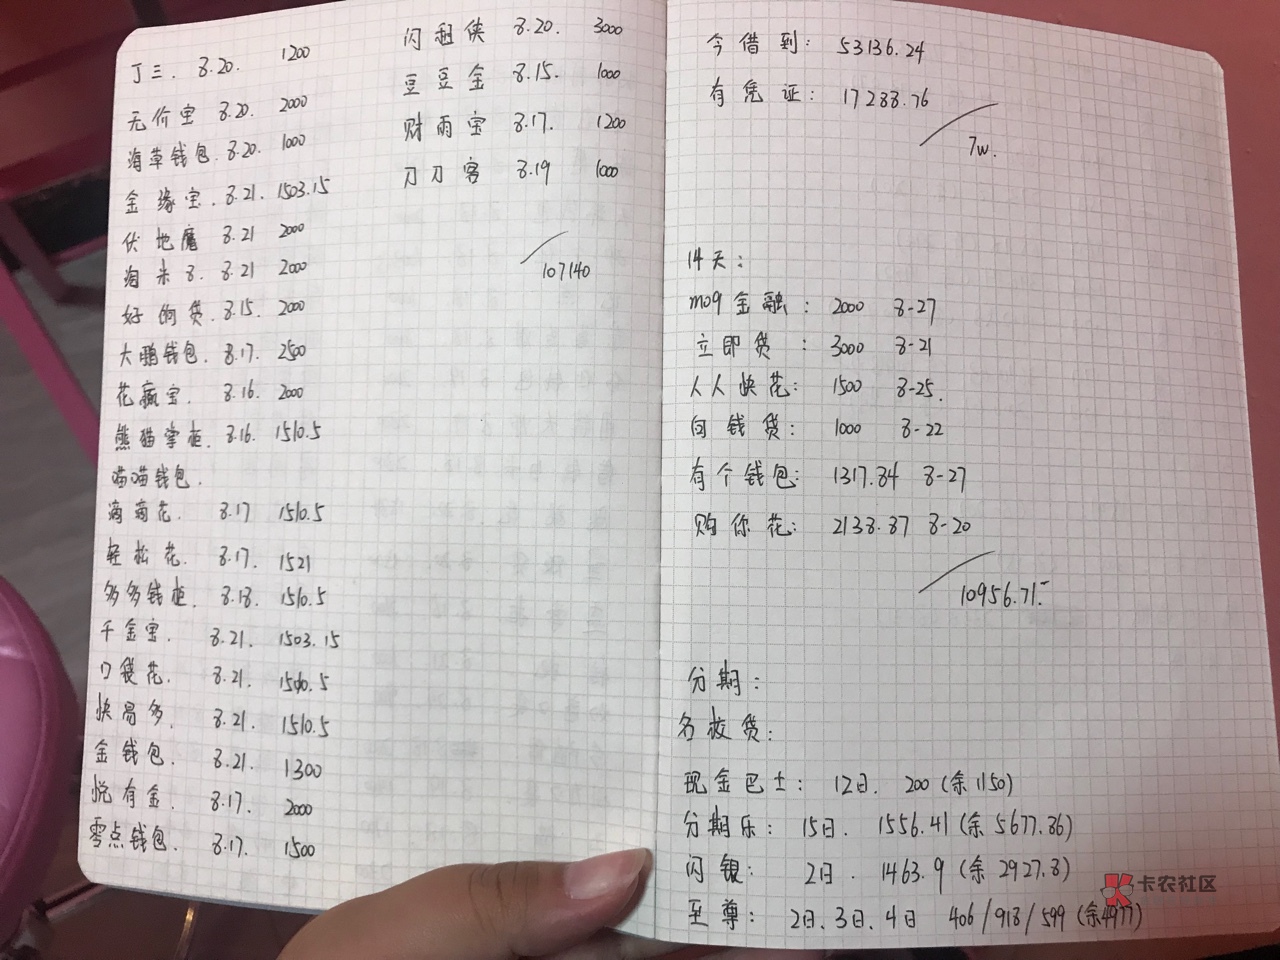 丁三. 8.20. 1200
无价宝 8.20. 2000
海草钱包. 8.20. 1000
金缘宝. 8.21. 1503.15
伏地魔 8.21 2000
淘米8. 8.21 2000
好的贷. 8.15. 2000
大鹏钱包. 8.17. 2500
花赢宝. 8.16. 2000
熊猫掌柜. 8.16. 1510.5
喵喵钱包.
滴滴花. 8.17 1510.5
轻松花. 8.17. 1521
多多钱柜. 8.18. 1510.5
千金宝. 8.21. 1503.15
口袋花. 8.21. 1510.5
快易多. 8.21. 1510.5
金钱包. 8.21. 1300
悦有金. 8.17. 2000
零点钱包. 8.17. 1500
闪租侠 8.20. 3000
豆豆金 8.15. 1000
财雨宝 8.17. 1200
刀刀客 8.19 1000
107140
今借到: 53136.24
有凭证: 17288.76
7w.
14天:
mo9金融: 2000 8-27
立即贷: 3000 8-21
人人快花: 1500 8-25.
向钱贷: 1000 8-22
有个钱包: 1317.84 8-27
购你花: 2138.87 8-20
10956.71.
分期:
名校贷:
现金巴士: 12日. 200(余1150)
分期乐: 15日. 1556.41(余5677.86)
闪银: 2日. 1463.9(余2927.8)
至尊: 2日、3日、4日 406/918/599(余4977)
卡农社区